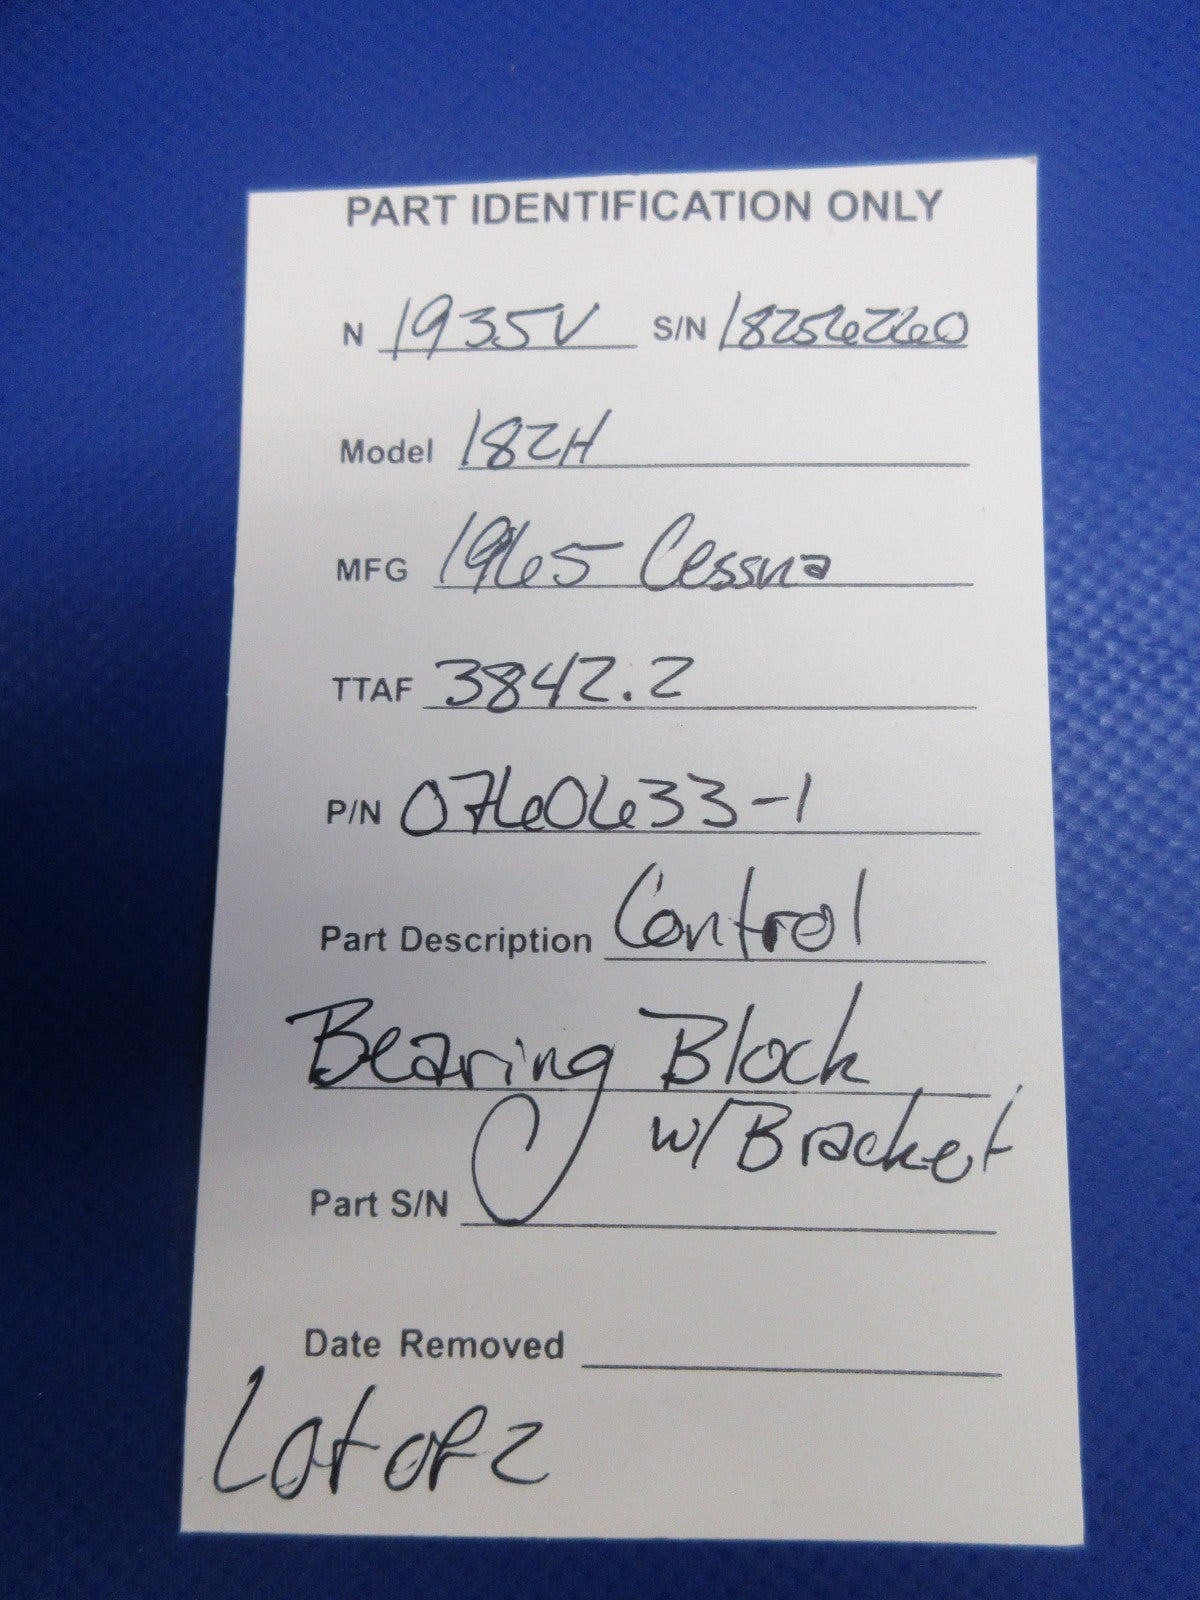 PART IDENTIFICATION ONLY
N 1935V S/N 18256260
Model 182H
MFG 1965 Cessna
TTAF 3842.2
P/N 0760633-1
Part Description Control
Bearing Block
w/ Bracket
Part S/N
Date Removed
Lot of 2